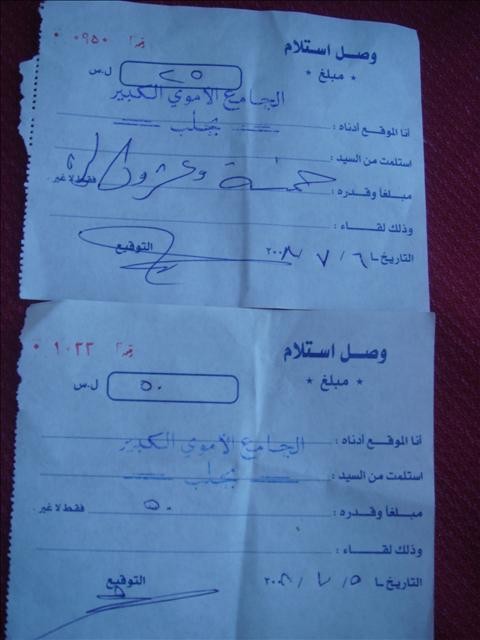 وصل استلام
نمرة ٠٩٥٠
* مبلغ *
٢٥ ل.س
الجامع الأموي الكبير
أنا الموقع أدناه :
بحلب
استلمت من السيد :
مبلغاً وقدره : خمسة وعشرون فقط لا غير
وذلك لقاء :
التاريخ ٦ / ٧ / ٢٠٠٨ التوقيع
وصل استلام
نمرة ١٠٢٢
* مبلغ *
٥٠ ل.س
أنا الموقع أدناه : الجامع الأموي الكبير
استلمت من السيد : بحلب
مبلغاً وقدره : ٥٠ فقط لا غير
وذلك لقاء :
التاريخ ٥ / ٧ / ٢٠٠٨ التوقيع